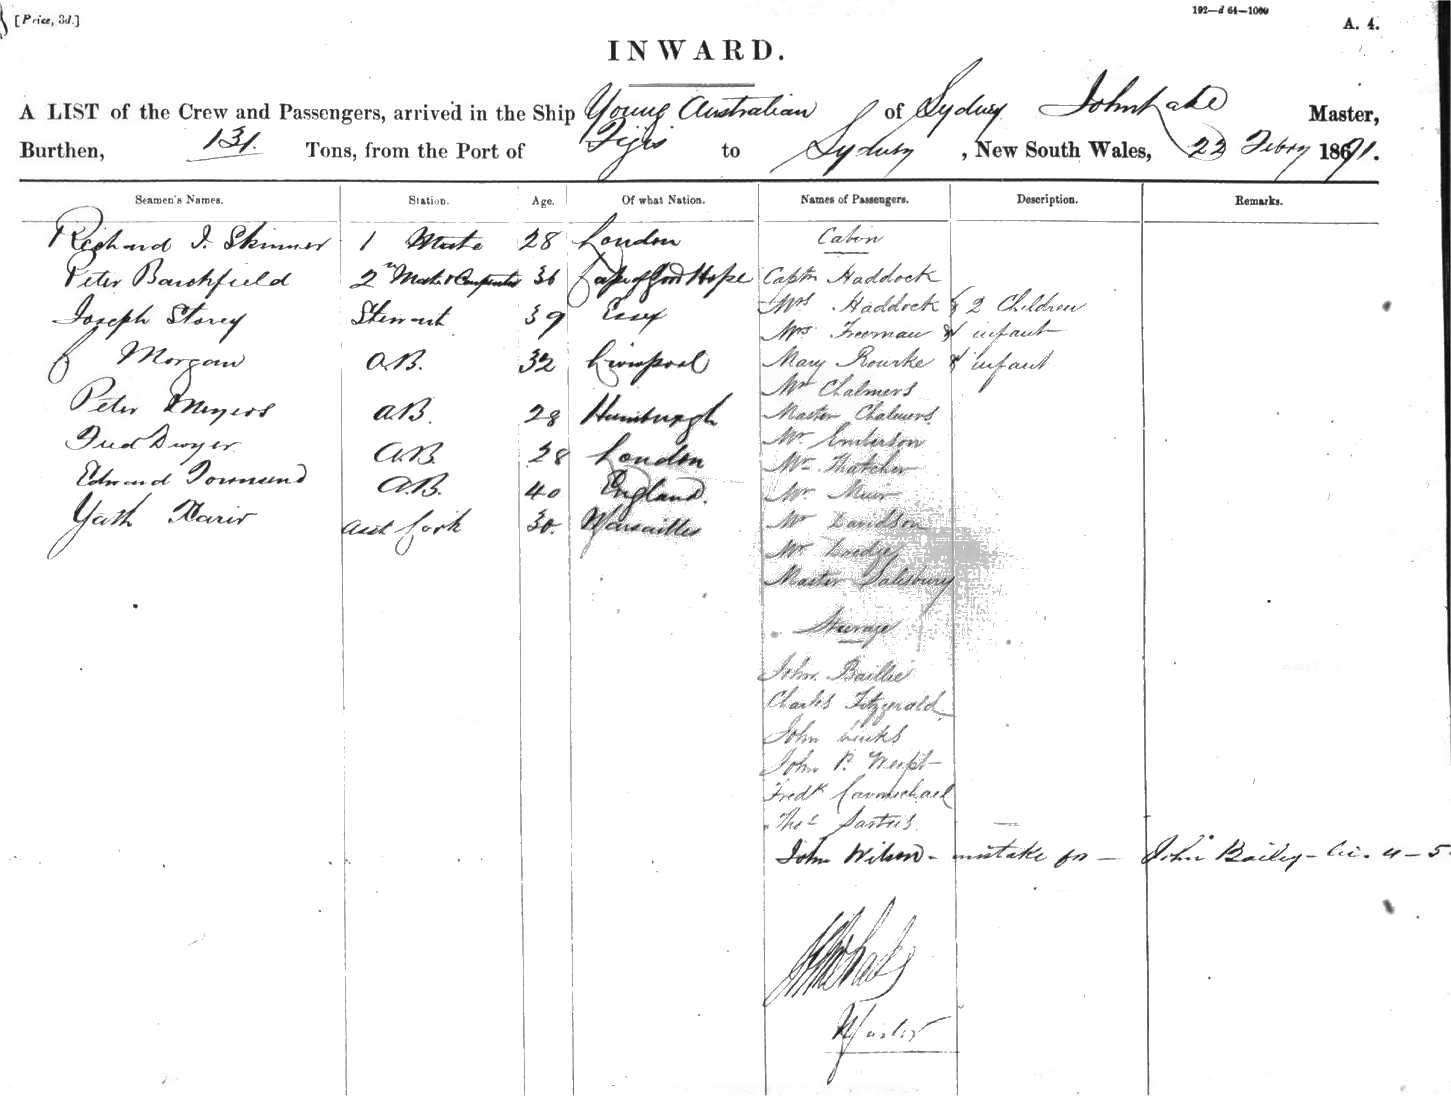 [Price, 3d.]
192—d 64—1000
A. 4.
INWARD.
A LIST of the Crew and Passengers, arrived in the Ship Young Australian of Sydney John Lake Master,
Burthen, 131. Tons, from the Port of Fijis to Sydney, New South Wales, 22 Febry 1871.
Seamen's Names. Station. Age. Of what Nation. Names of Passengers. Description. Remarks.
Richard J. Skinner 1 Mate 28 London Cabin
Peter Barchfield 2nd Mate & Carpenter 36 Cape of Good Hope Captn Haddock
Mrs Haddock & 2 Children
Joseph Storey Steward 39 Essex
Mrs Freeman & infant
Morgan A.B. 32 Liverpool Mary Rourke & infant
Mr Chalmers
Peter Meyers A.B. 28 Hamburgh Master Chalmers
Fred Dwyer A.B. 28 London Mr Emberson
Mr Thatcher
Edward Townsend A.B. 40 England. Mr Muir
Asst Cook 30. Marsailles Mr Davidson
Mr
Master Salisbury
Steerage
John Baillie
Charles Fitzgerald
John
John P.
Fredk Carmichael
Thos
John Wilson - mistake for - John Bailey -
Master